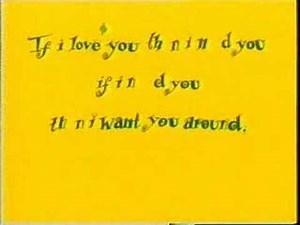 If i love you th n i n d you
if i n d you
th n i want you around.